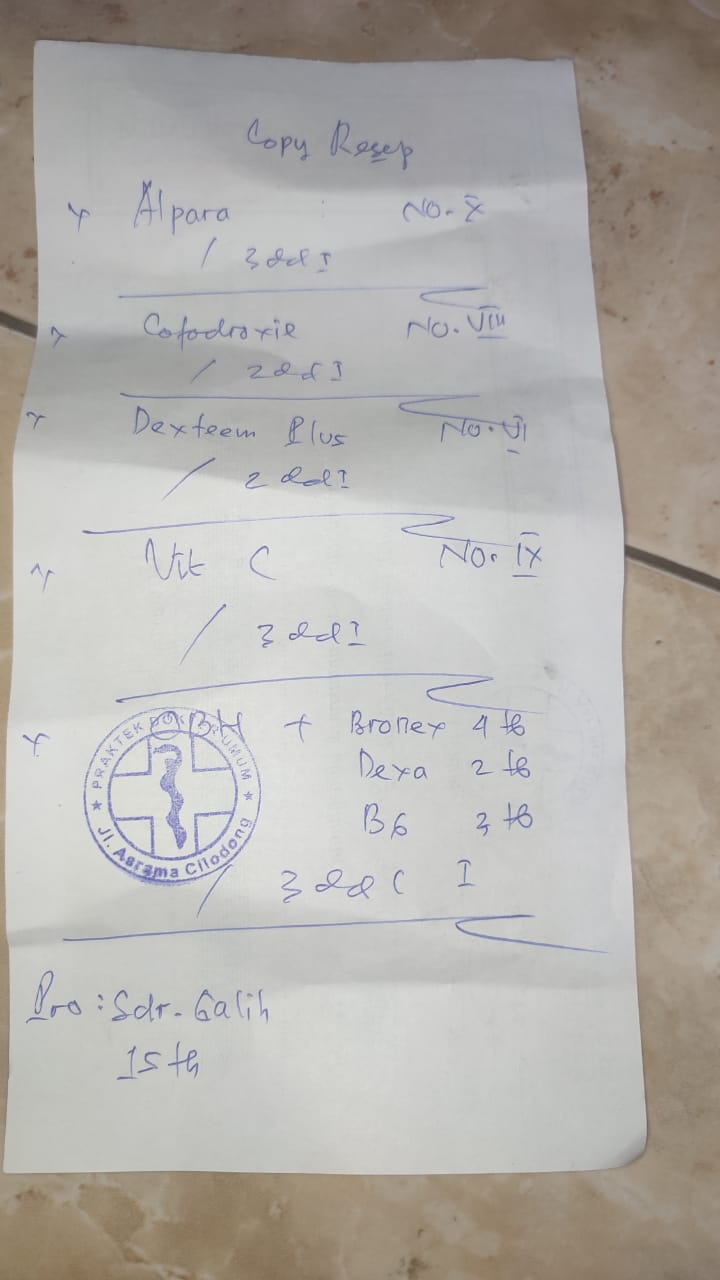 Copy Resep
Alpara No. X
/ 3 dd I
Cofodroxie No. VIII
/ 2 dd I
Dexteem Plus No. VI
/ 2 dd I
Vit C No. IX
/ 3 dd I
OBH + Bronex 4 tb
Dexa 2 tb
B6 3 tb
/ 3 dd C I
PRAKTEK DOKTER UMUM
Jl. Asrama Cilodong
Pro : Sdr. Galih
15 th